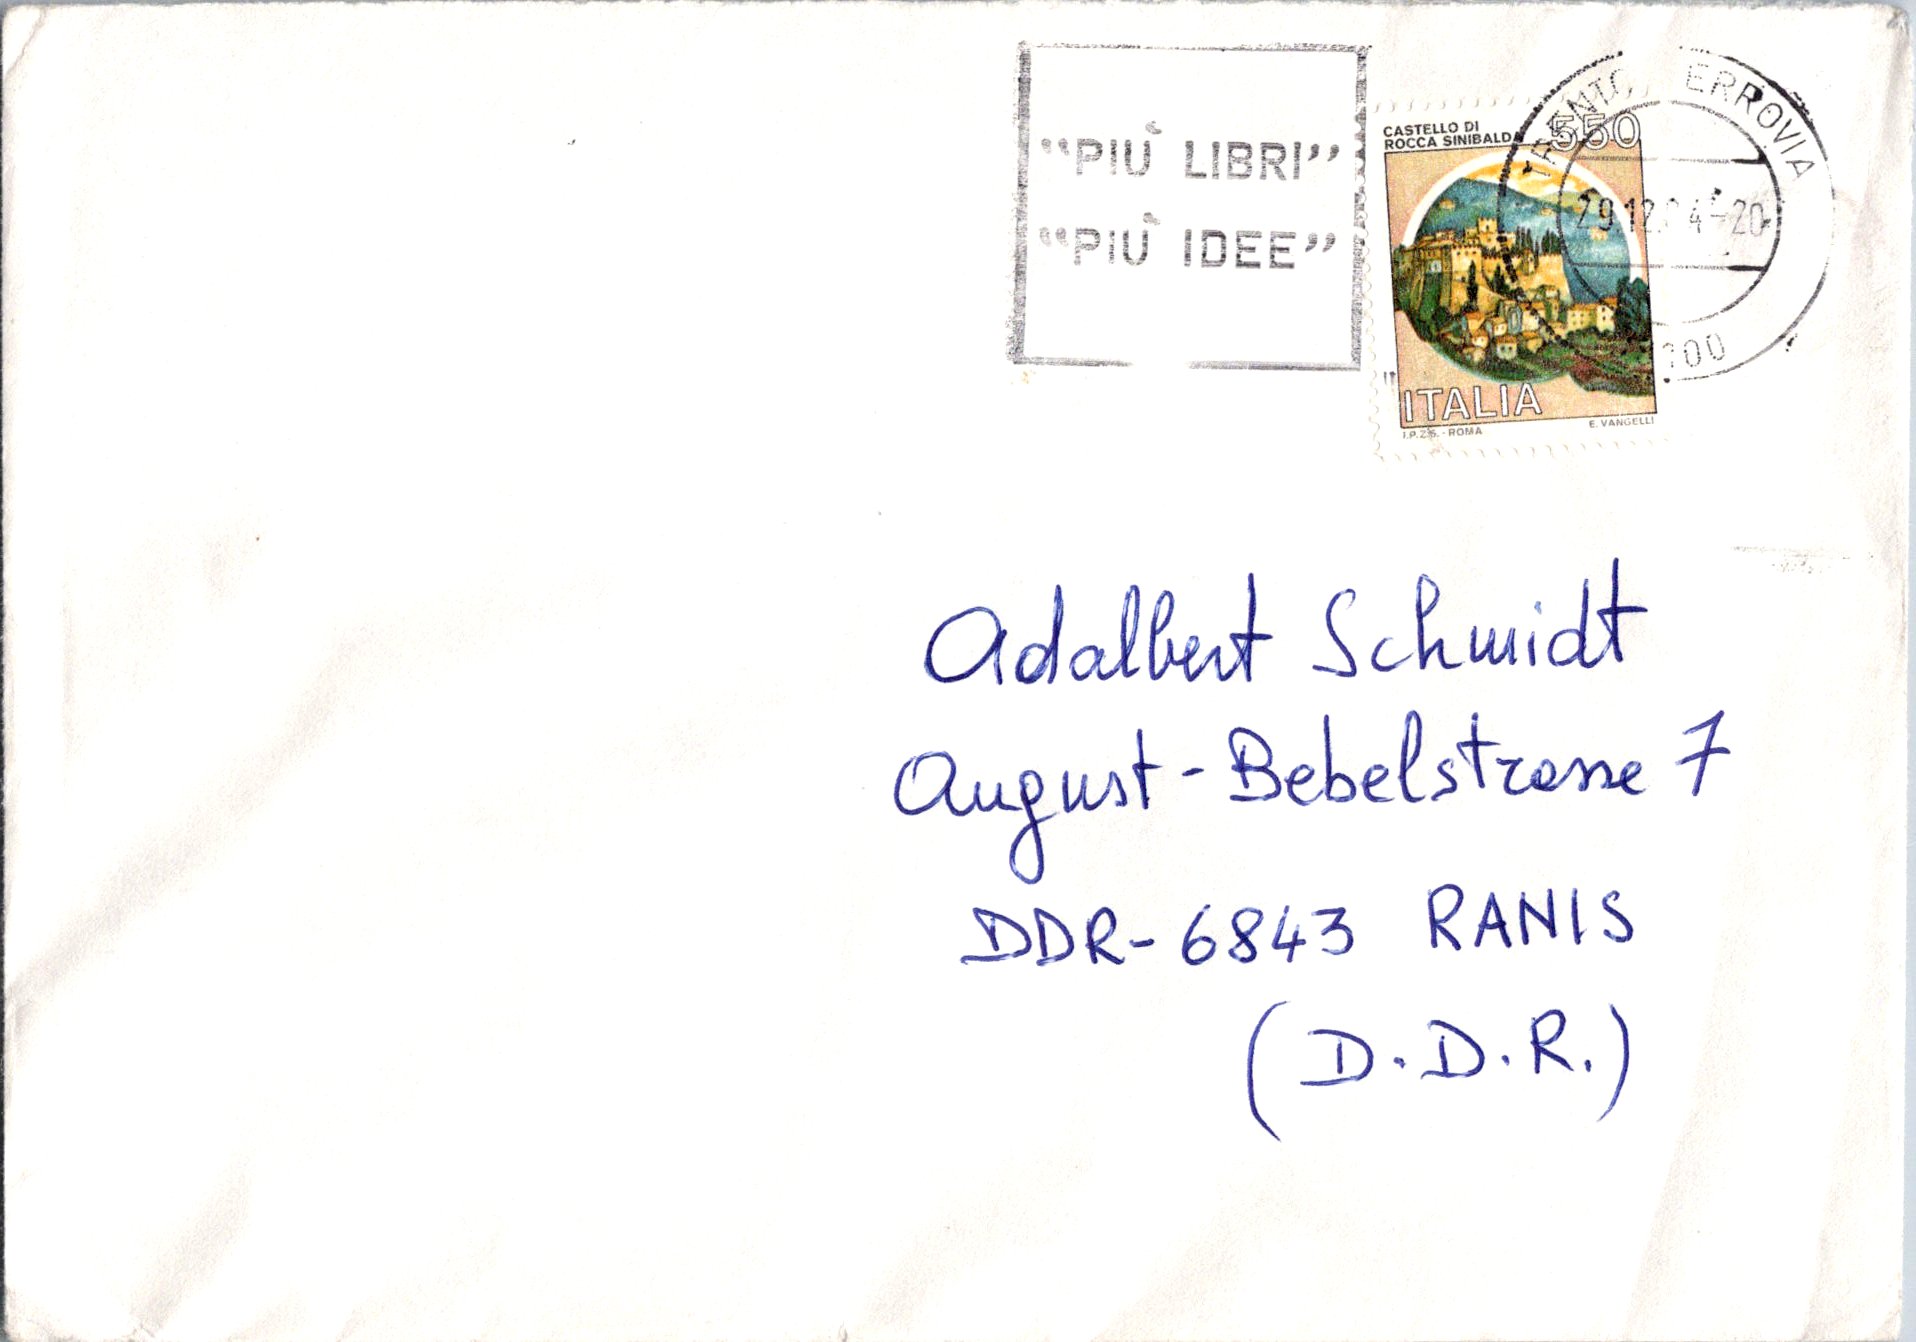 "PIÙ LIBRI"
"PIÙ IDEE"
CASTELLO DI
ROCCA SINIBALDA
550
ITALIA
I.P.Z.S. - ROMA
E. VANGELLI
TRENTO ERROVIA
29.12. 4-20
100
Adalbert Schmidt
August-Bebelstrasse 7
DDR-6843 RANIS
(D.D.R.)